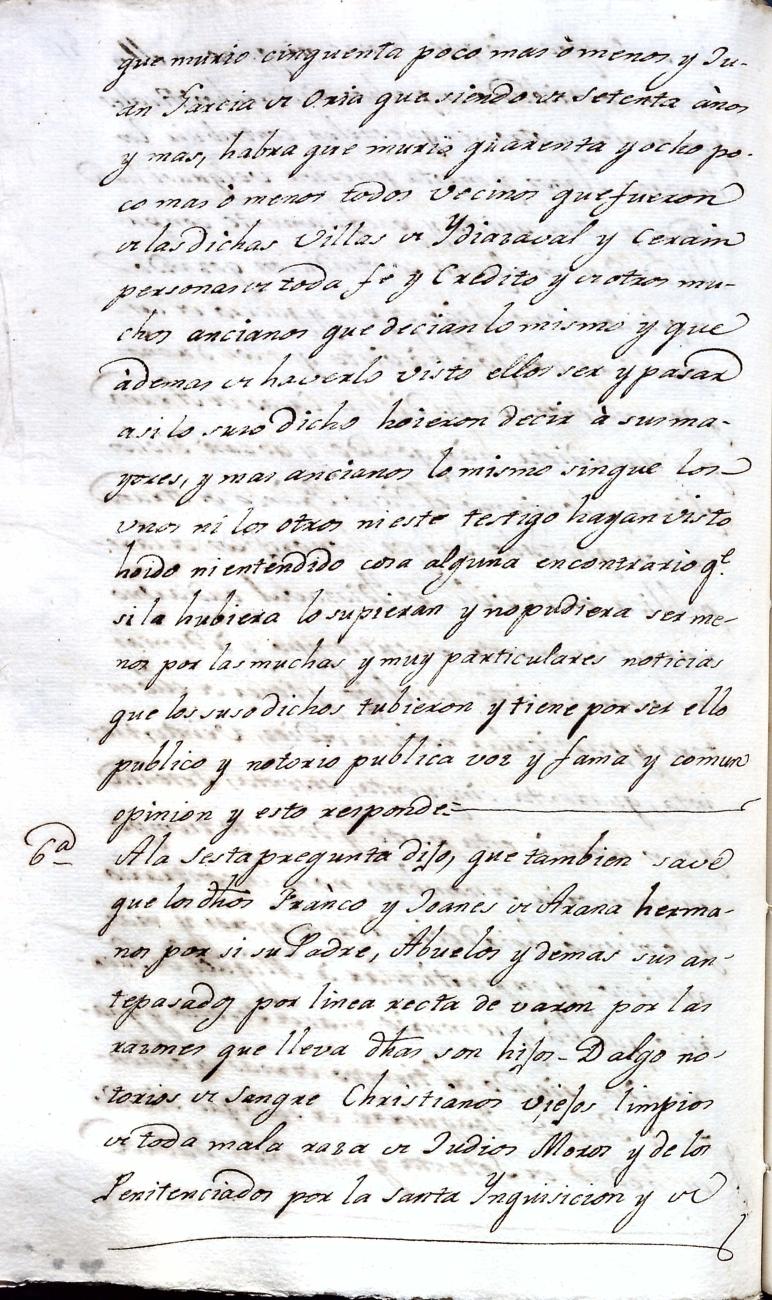 que murio cinquenta poco mas ò menos y Ju-
an Garcia de Oria que siendo de setenta años
y mas, habra que murio quarenta y ocho po-
co mas ò menos todos vecinos que fueron
de las dichas Villas de Ydiazaval y Cerain
personas de toda fè y Credito y de otros mu-
chos ancianos que decian lo mismo y que
àdemas de haverlo visto ellos ser y pasar
asi lo suso dicho hoieron decir à sus ma-
yores, y mas ancianos lo mismo sin que los
unos ni los otros ni este testigo hayan visto
hoido ni entendido cosa alguna encontrario q.e
si la hubiera lo supieran y no pudiera ser me-
nos por las muchas y muy particulares noticias
que los suso dichos tubieron y tiene por ser ello
publico y notorio publica voz y fama y comun
opinion y esto responde=
6a A la Sesta pregunta dijo, que tambien save
que los dhos Franco y Joanes de Arana herma-
nos por si su Padre, Abuelos y demas sus an-
tepasados por linea recta de varon por las
razones que lleva dhas son hijos-Dalgo no-
torios de sangre Christianos viejos limpios
de toda mala raza de Judios Moros y de los
Penitenciados por la santa Ynquisicion y de